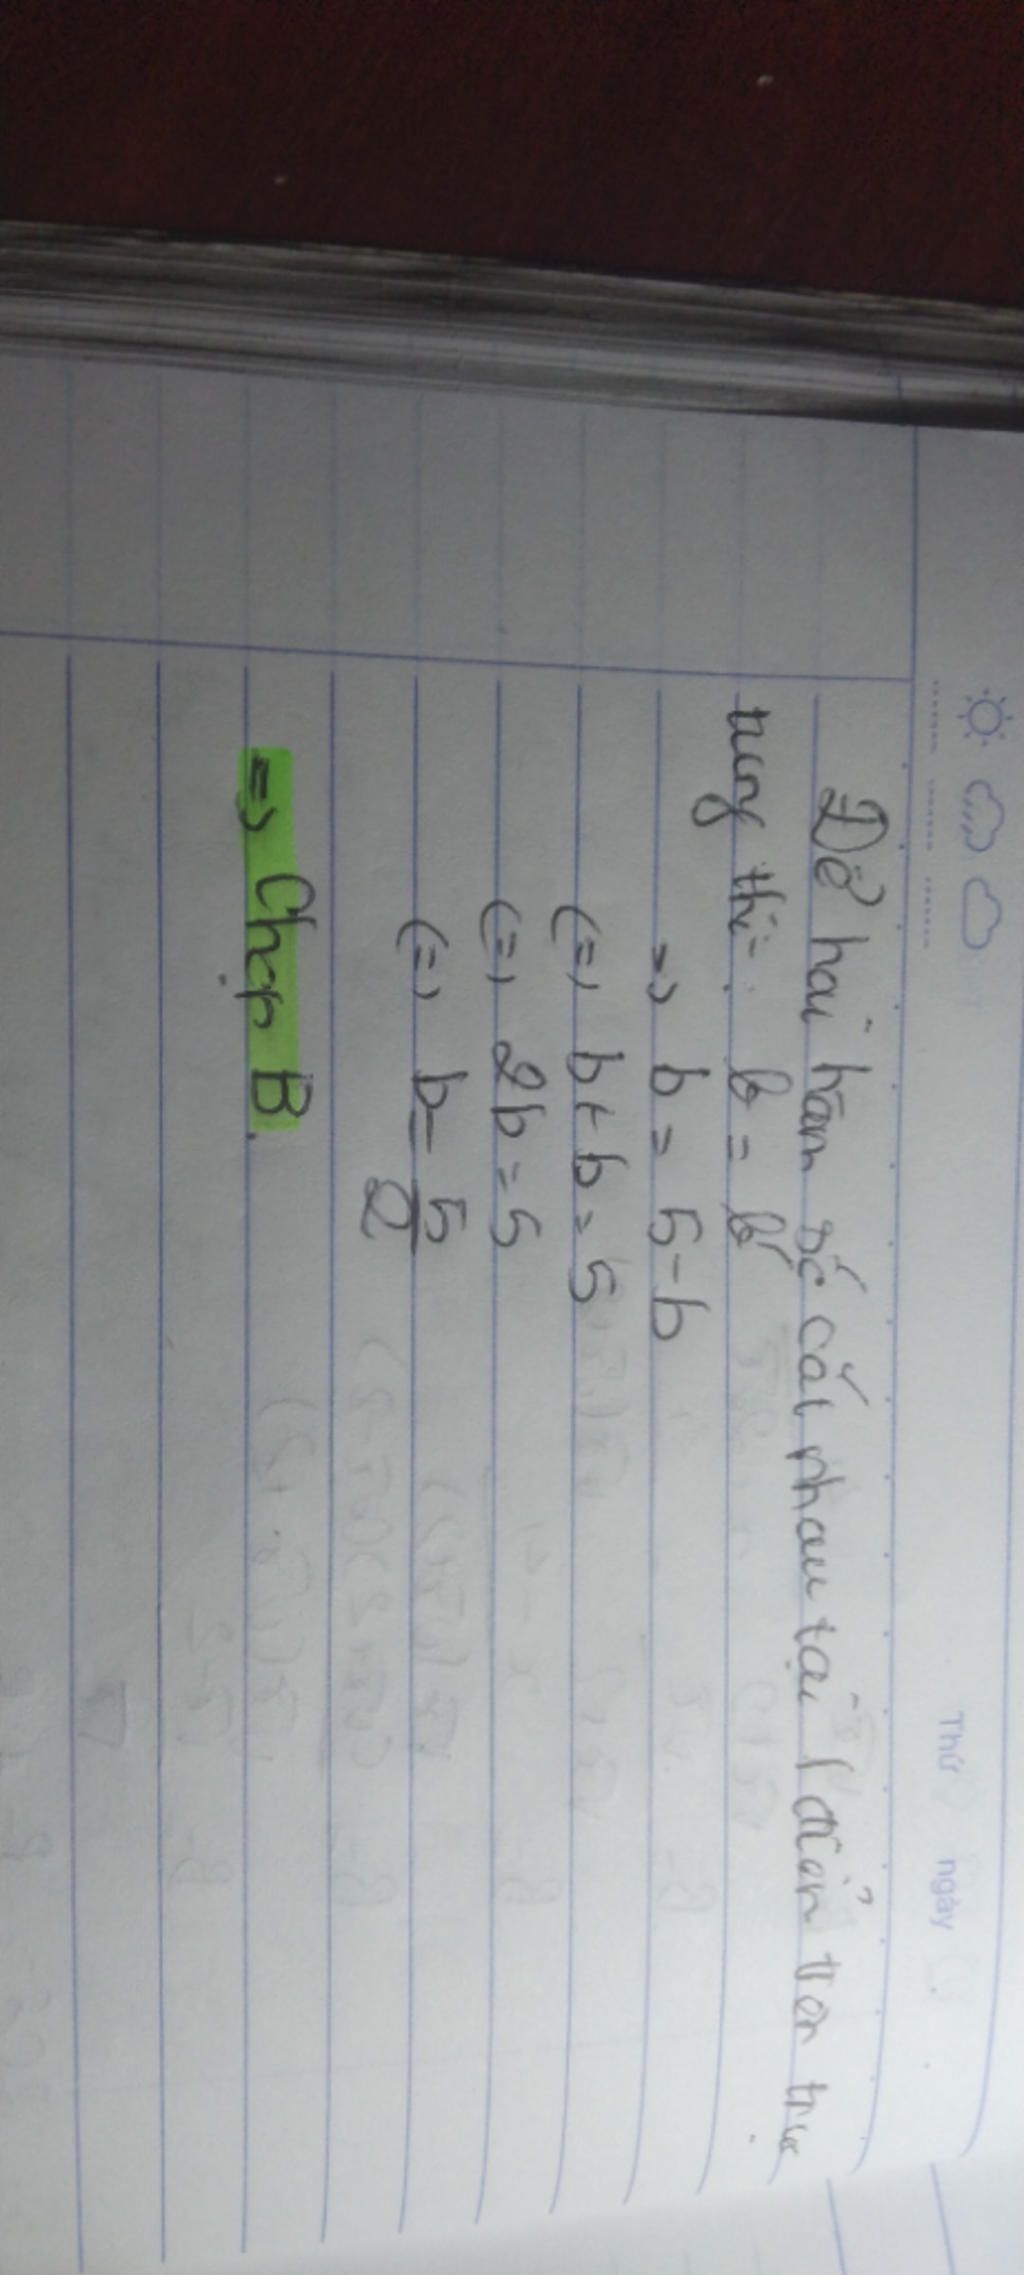 Thứ ngày
Để hai hàm số cắt nhau tại 1 điểm trên trục
tung thì: b = b'
=> b = 5 - b
(=) b + b = 5
(=) 2b = 5
(=) b = 5/2
=> Chọn B.